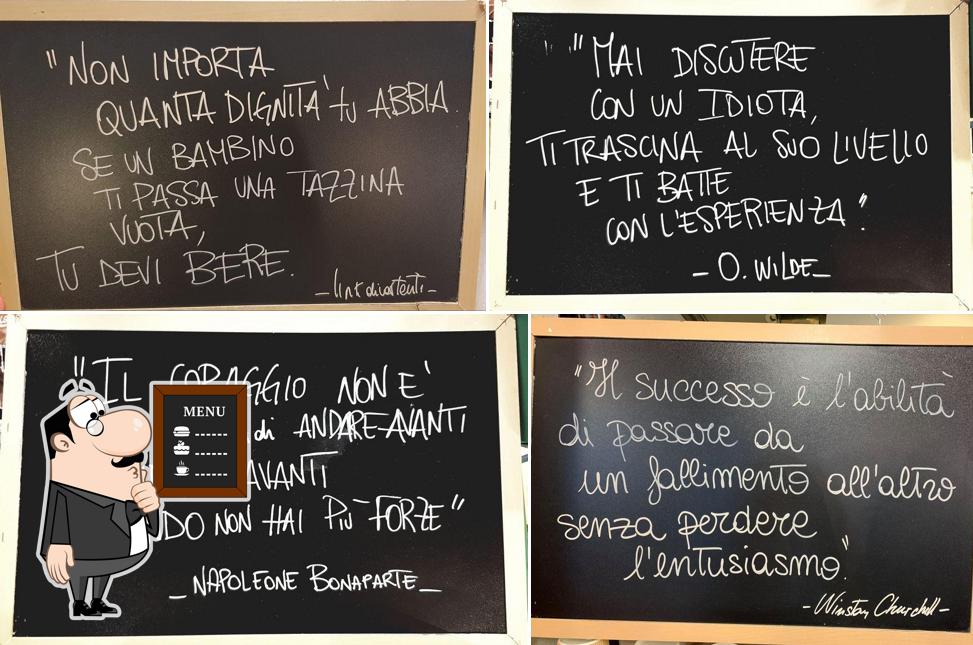 "NON IMPORTA
QUANTA DIGNITA' tu ABBIA
SE UN BAMBINO
TI PASSA UNA TAZZINA
VUOTA,
TU DEVI BERE.
"MAI DISCUTERE
CON UN IDIOTA,
TI TRASCINA AL SUO LIVELLO
E TI BATTE
CON L'ESPERIENZA".
- O. WILDE -
"IL CORAGGIO NON E'
di ANDARE AVANTI
AVANTI
DO NON HAI PIÙ FORZE"
- NAPOLEONE BONAPARTE -
MENU
"Il successo è l'abilità
di passare da
un fallimento all'altro
senza perdere
l'entusiasmo".
- Winston Churchill -